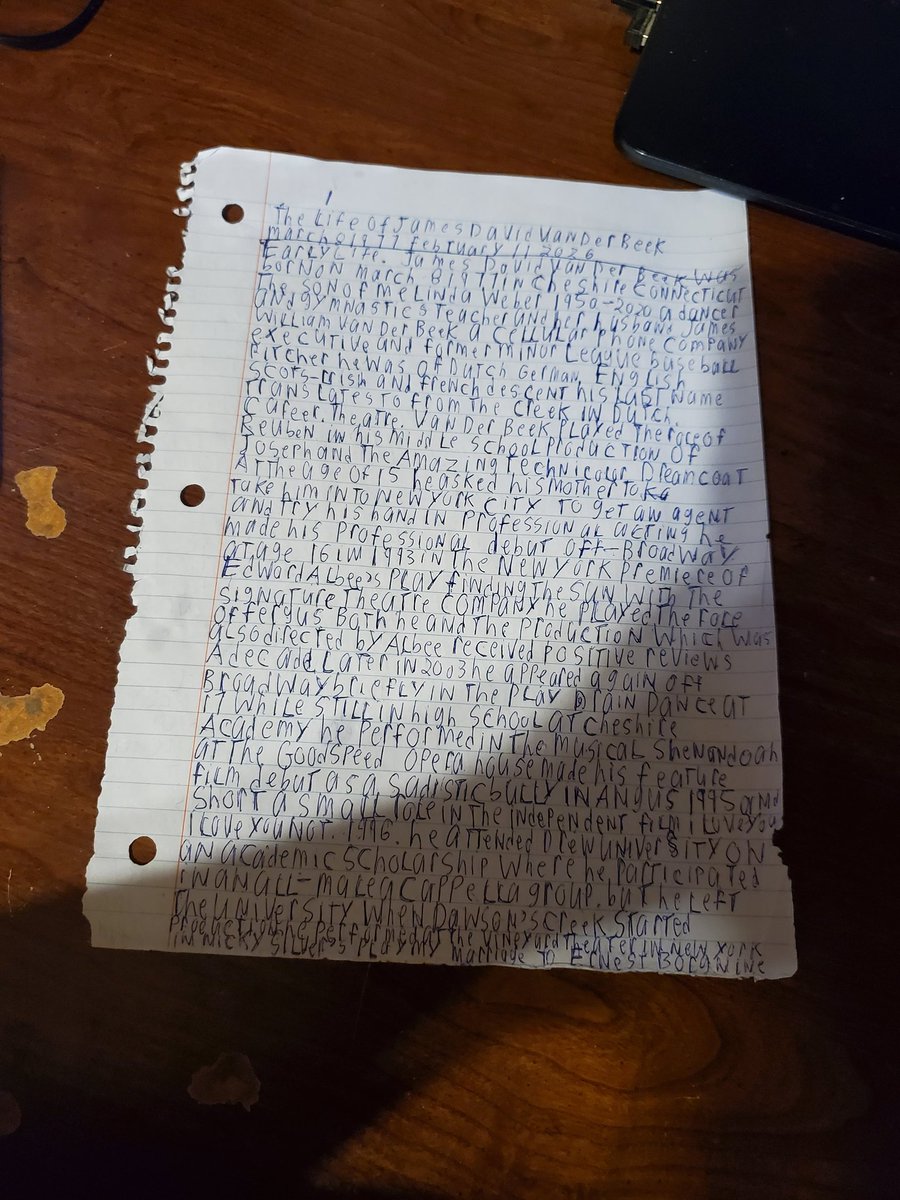 1
The Life of James David Van Der Beek
march 8 1977 february 11 2026
Early Life. James David Van Der Beek was
born on march 8 1977 in Cheshire Connecticut
The son of Melinda Weber 1950-2020 a dancer
and gymnastics teacher and her husband James
William Van Der Beek a cellular phone company
executive and former minor League baseball
Pitcher he was of Dutch German, English
Scots-Irish and french descent his Last name
Translates to from the Creek in Dutch.
Career. Theatre. Van Der Beek Played The role of
Reuben in his middle school Production of
Joseph and The Amazing Technicolor Dreamcoat
At the age of 15 he asked his mother to
Take him into New York City to get an agent
and try his hand in Professional acting he
made his Professional debut off-Broadway
at age 16 in 1993 in the New York Premiere of
Edward Albee's Play finding The Sun with The
Signature Theatre Company he Played The role
of fergus Both he and The Production which was
also directed by Albee received Positive reviews
A decade Later in 2003 he appeared again off
Broadway briefly in The Play Rain Dance at
17 while still in high School at Cheshire
Academy he Performed in The musical Shenandoah
at The Goodspeed opera house made his feature
film debut as a sadistic bully in Angus 1995 and
Short a small role in The independent film i Love you
i Love you not 1996. he attended Drew university on
an academic Scholarship where he Participated
in an all-male a cappella group. but he Left
The university when Dawson's Creek Started
Production he Performed at The Vineyard Theater in New York
in Nicky Silver's Play my marriage To Ernest Borgnine